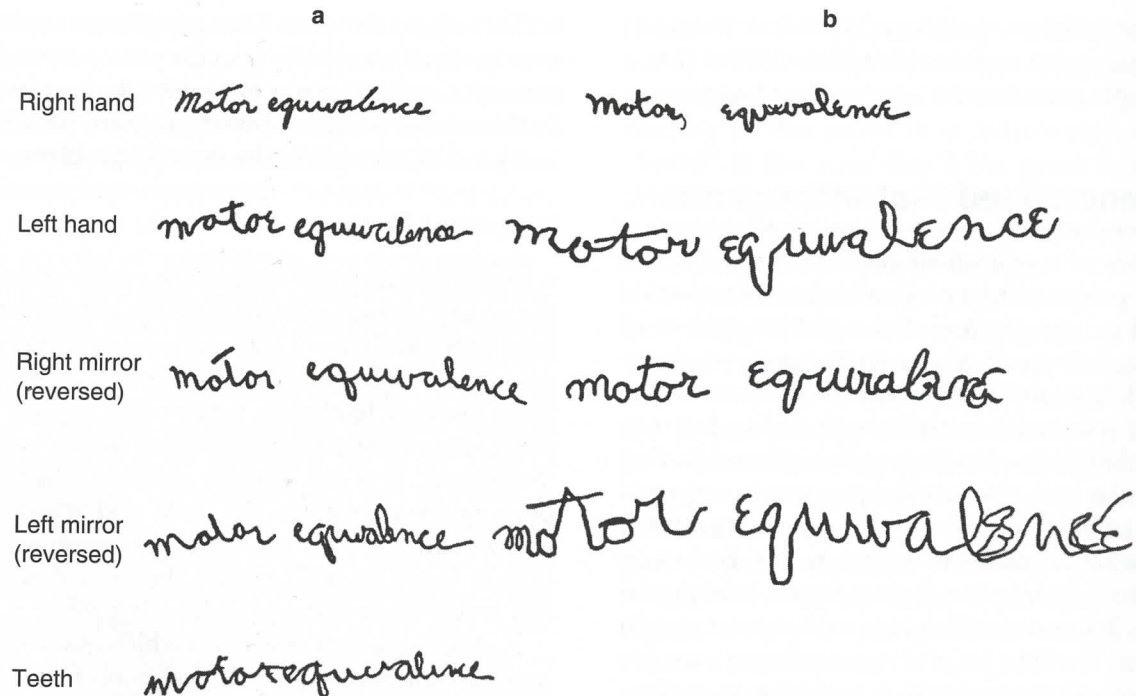 a b
Right hand Motor equivalence motor, equivalence
Left hand motor equivalence motor equivalence
Right mirror
(reversed) motor equivalence motor equivalence
Left mirror
(reversed) motor equivalence motor equivalence
Teeth motor equivalence